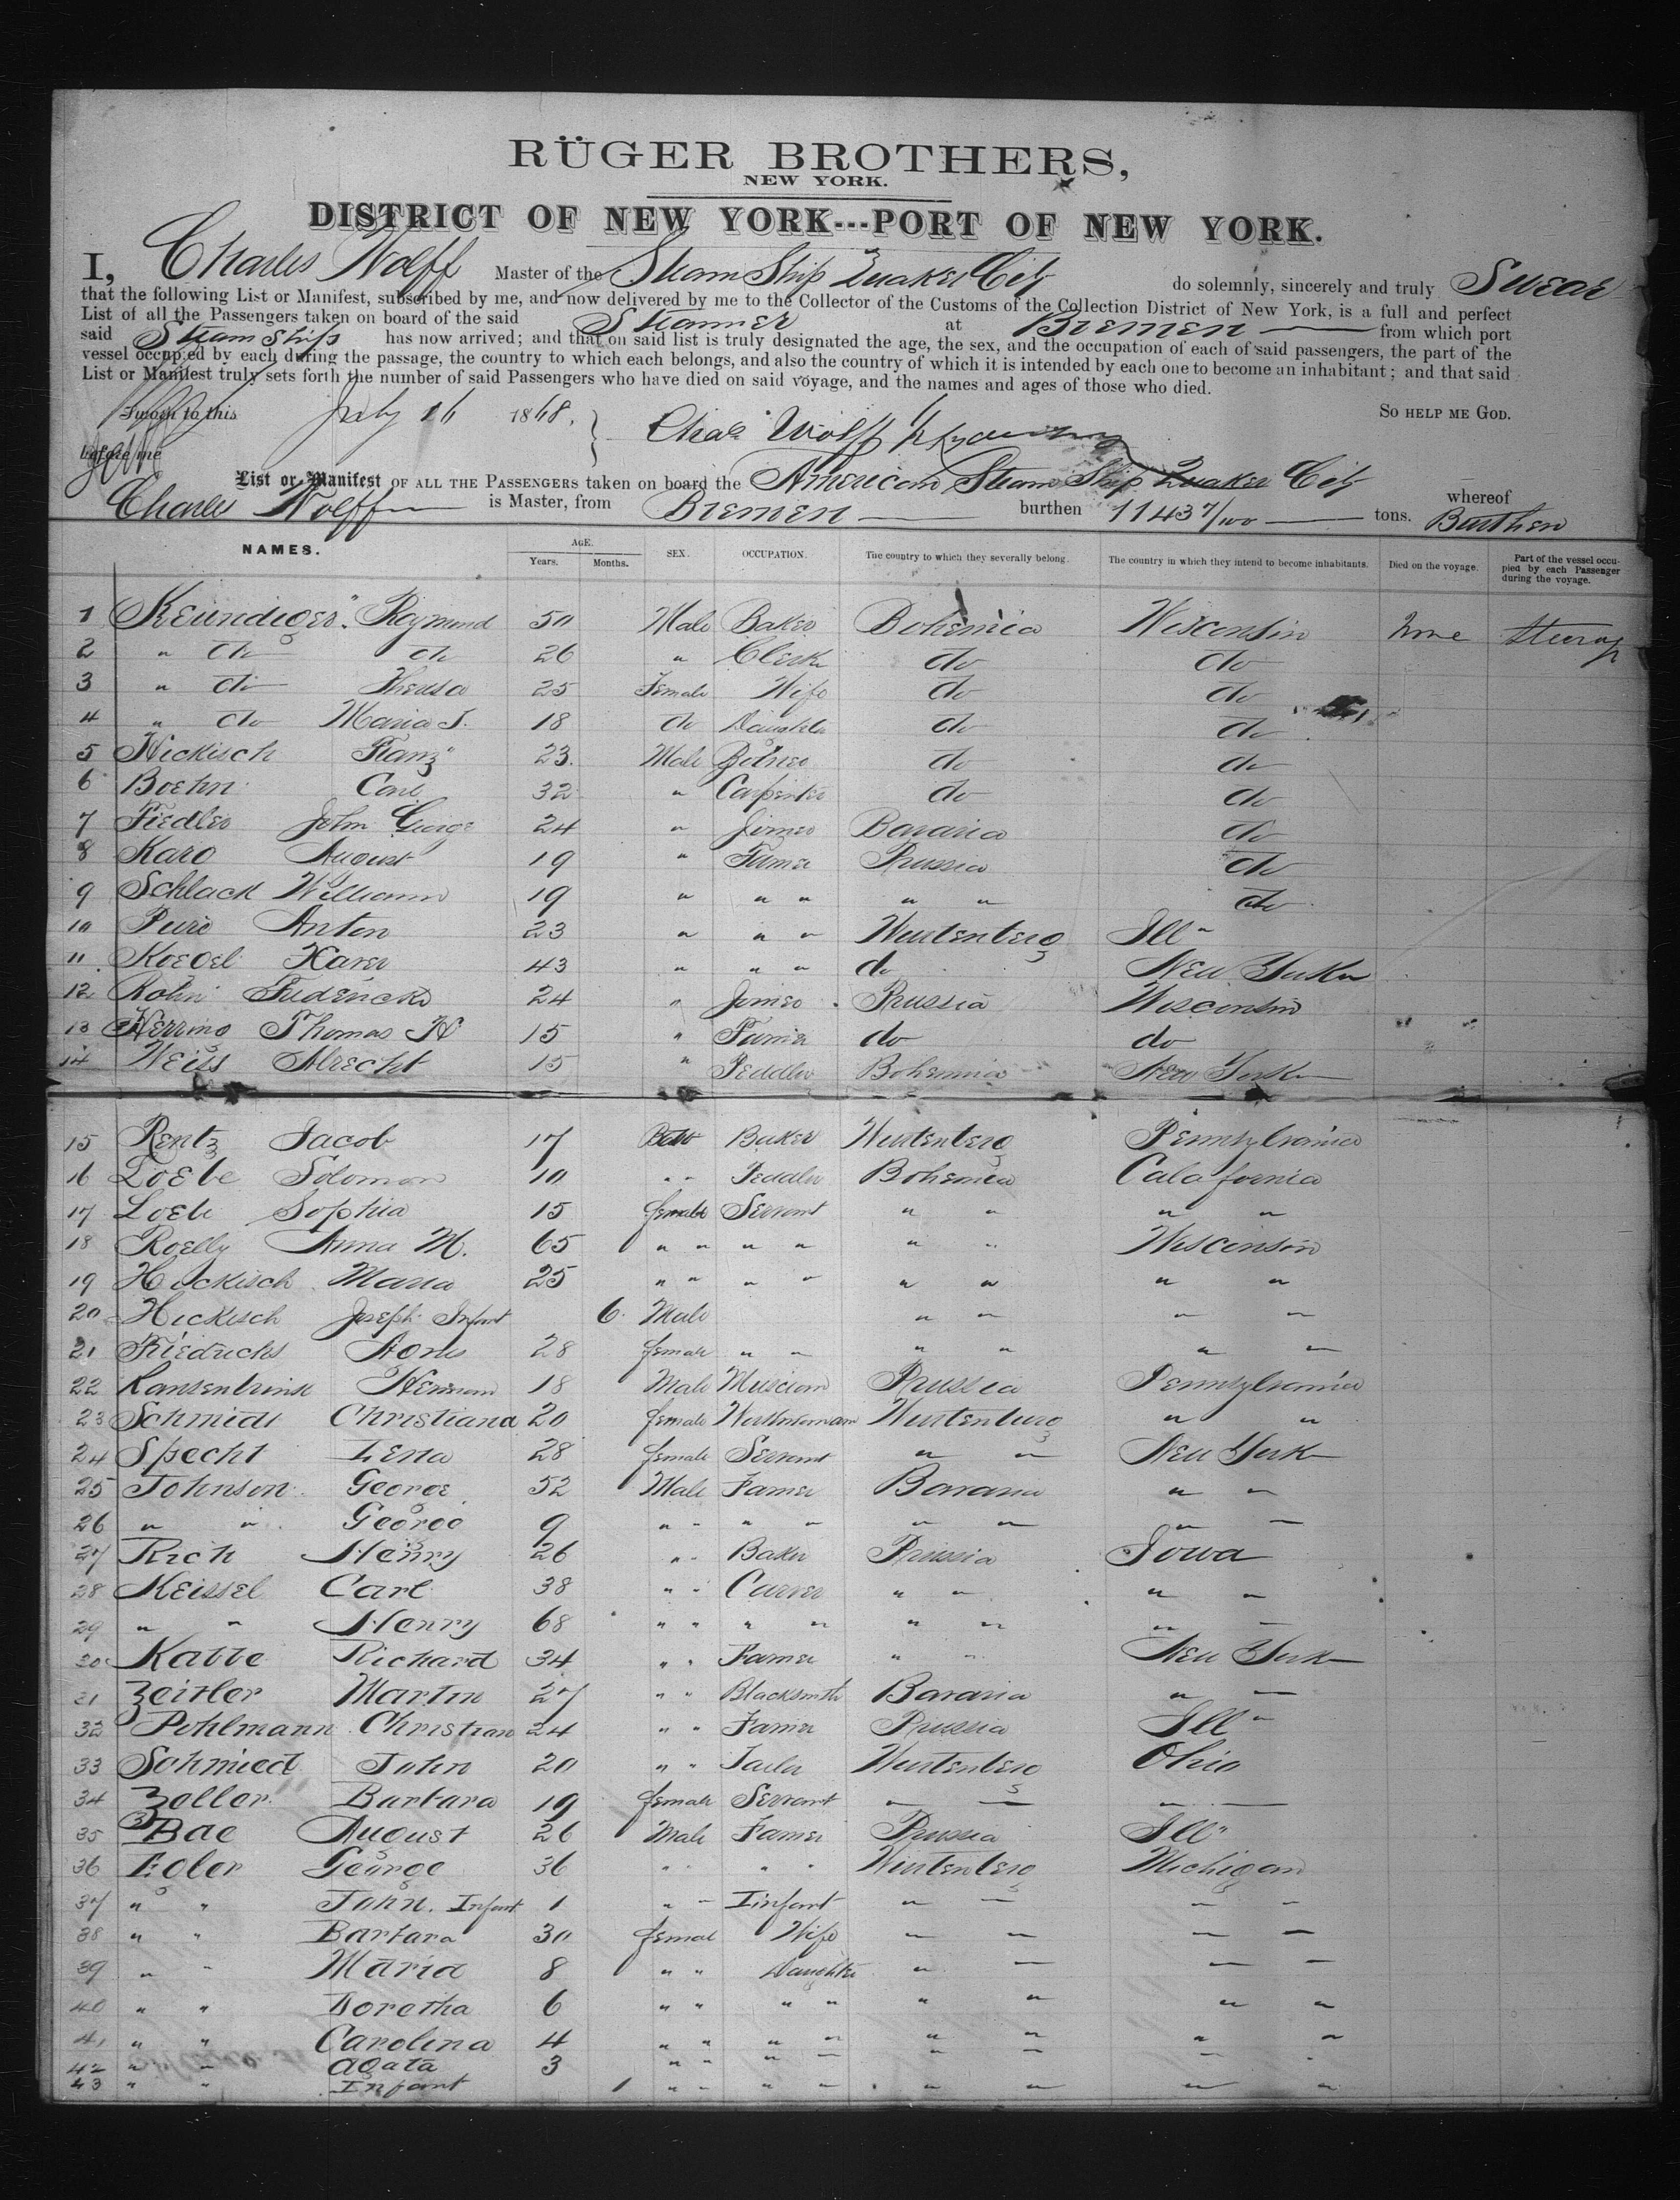 RÜGER BROTHERS,
NEW YORK.
DISTRICT OF NEW YORK---PORT OF NEW YORK.
I, Charles Wolff Master of the Steam Ship Quaker City do solemnly, sincerely and truly Swear
that the following List or Manifest, subscribed by me, and now delivered by me to the Collector of the Customs of the Collection District of New York, is a full and perfect
List of all the Passengers taken on board of the said Steamer at Bremen from which port
said Steam Ship has now arrived; and that on said list is truly designated the age, the sex, and the occupation of each of said passengers, the part of the
vessel occupied by each during the passage, the country to which each belongs, and also the country of which it is intended by each one to become an inhabitant; and that said
List or Manifest truly sets forth the number of said Passengers who have died on said voyage, and the names and ages of those who died.
Sworn to this July 16 1868. SO HELP ME GOD.
Chas Wolff
before me
List or Manifest OF ALL THE PASSENGERS taken on board the American Steam Ship Quaker City whereof
Charles Wolff is Master, from Bremen burthen 1143 7/100 tons. Burthen
NAMES. AGE. Years. Months. SEX. OCCUPATION. The country to which they severally belong. The country in which they intend to become inhabitants. Died on the voyage. Part of the vessel occupied by each Passenger during the voyage.
1 Keundiger Raymund 50 Male Baker Bohemia Wisconsin None Steerage
2 " do do 26 " Clerk do do
3 " do Theresa 25 Female Wife do do
4 " do Maria T. 18 do Daughter do do
5 Hickisch Franz 23 Male do do
6 Boehn Carl 32 " Carpenter do do
7 Fiedler John George 24 " Joiner Bavaria do
8 Karo August 19 " Farmer Prussia do
9 Schlack William 19 " " " " " do
10 Anton 23 " " " Wurtenberg Ill"
11 Koegel Xaver 43 " " " do New York
12 Rohn Frederick 24 " Joiner Prussia Wisconsin
13 Herring Thomas H 15 " Farmer do do
14 Weiss Alrecht 15 " Peddler Bohemia New York
15 Rentz Jacob 17 Baker Wurtenberg Pennsylvania
16 Loebe Solomon 10 " " Peddler Bohemia Calafornia
17 Loebe Sophia 15 female Servant " " " "
18 Roelly Anna M. 65 " " " " " " Wisconsin
19 Hickisch Maria 25 " " " " " " " "
20 Hickisch Joseph Infant 6 Male " " " "
21 Friedrichs Agnes 28 female " " " " " "
22 Herman 18 Male Musician Prussia Pennsylvania
23 Schmidt Christiana 20 female Wurtenburg " "
24 Specht Lena 28 female Servant " " New York
25 Johnson George 52 Male Farmer Bavaria " "
26 " " George 9 " " " " " " " "
27 Rich Henry 26 " " Baker Prussia Iowa
28 Keissel Carl 38 " " Carver " " " "
29 " " Henry 68 " " " " " " " "
30 Katte Richard 34 " " Farmer " " New York
31 Zeitler Martin 27 " " Blacksmith Bavaria " "
32 Pohlmann Christian 24 " " Farmer Prussia Ill"
33 Schmied John 20 " " Tailor Wurtenberg Ohio
34 Zoller Barbara 19 female Servant " " " "
35 Bae August 26 Male Farmer Prussia Ill"
36 Egler George 36 " " " " Wurtenberg Michigan
37 " " John. Infant 1 " " Iinfant " " " "
38 " " Barbara 30 femal Wife " " " "
39 " " Maria 8 " " Daughter " " " "
40 " " Doretha 6 " " " " " " " "
41 " " Carolina 4 " " " " " " " "
42 " " Agata 3 " " " " " " " "
43 " " Infant 1 " " " " " " " "